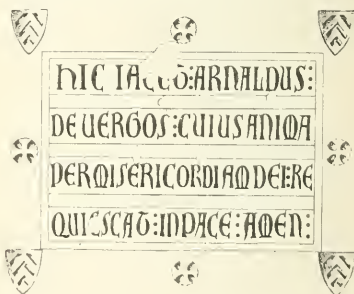 HIC IACET:ARNALDUS:
DE UERGOS:CUIUS ANIMA
PER MISERICORDIAM DEI:RE
QUIESCAT:IN PACE:AMEN: